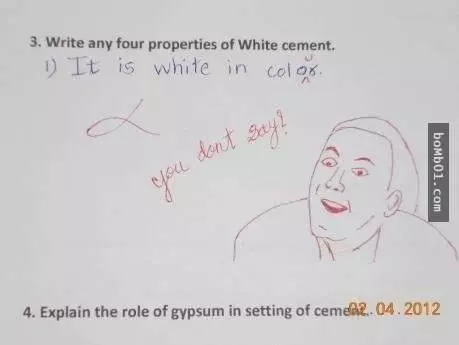 3. Write any four properties of White cement.
1) It is white in color.
u
you don't say?
boMb01.com
4. Explain the role of gypsum in setting of cement.
02.04.2012